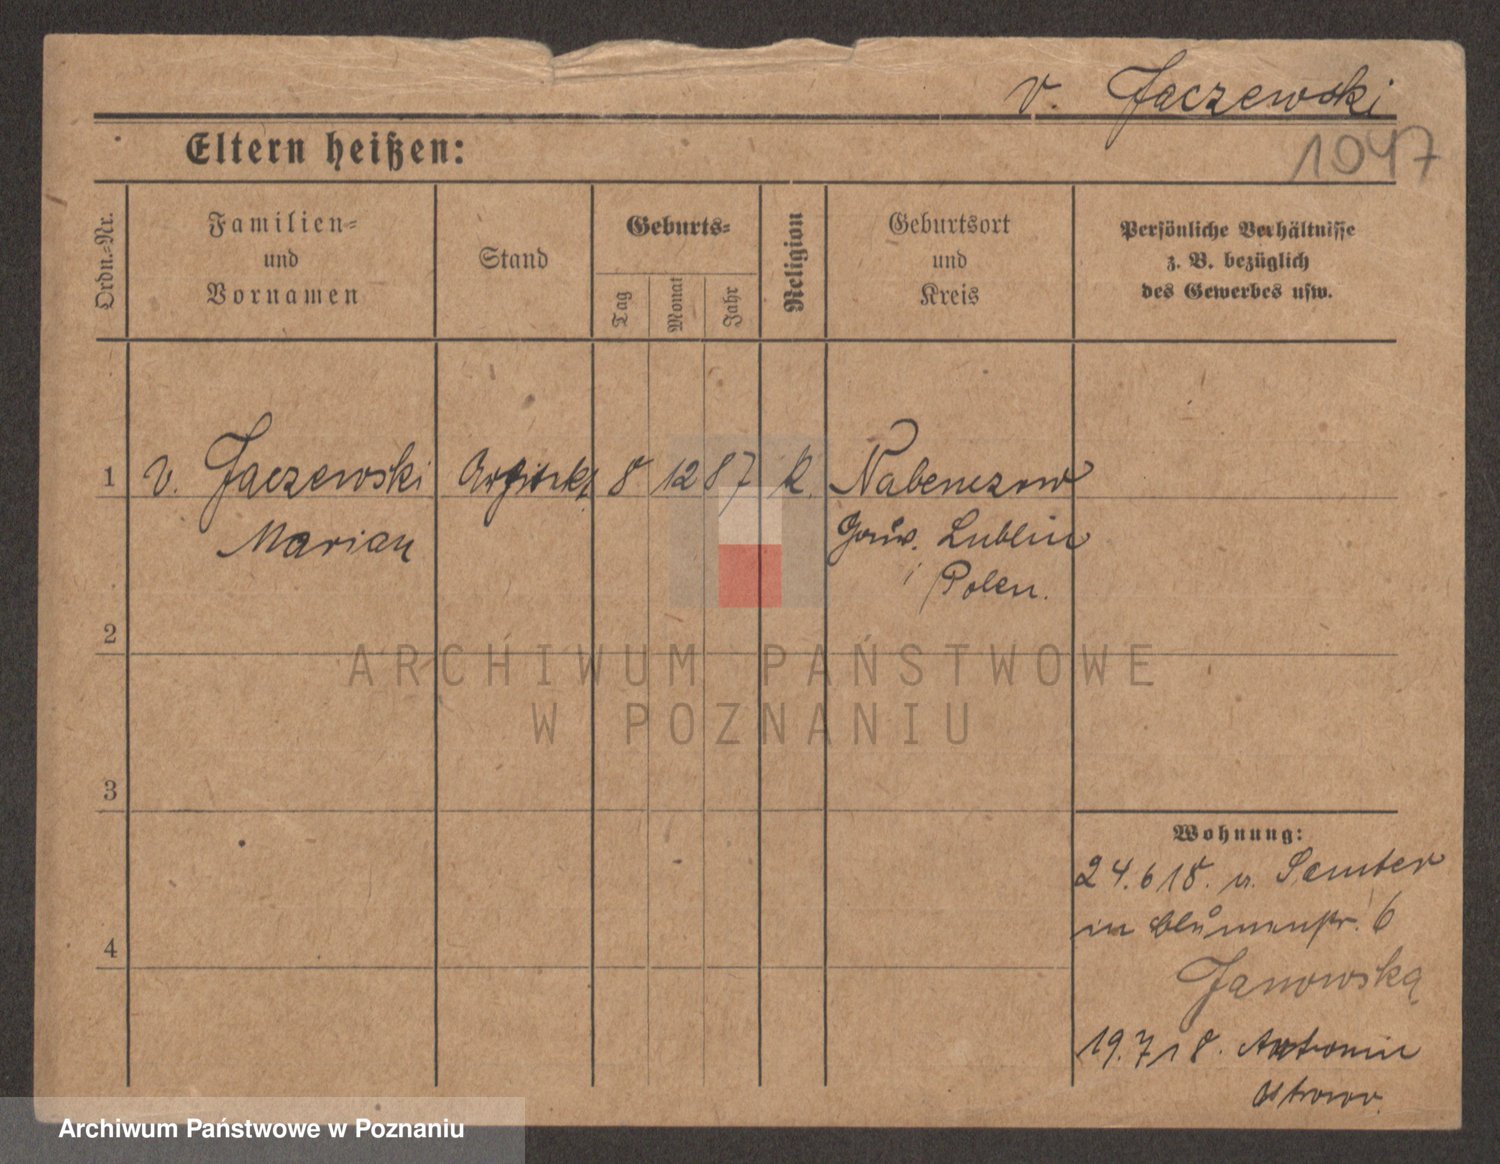 v. Jaczewski
1047
Eltern heißen:
Ordn.-Nr.
Familien-
und
Vornamen
Stand
Geburts-
Tag
Monat
Jahr
Religion
Geburtsort
und
Kreis
Persönliche Verhältnisse
z. B. bezüglich
des Gewerbes usw.
1 v. Jaczewski 8 12 87 K.
Marian
Gouv. Lublin
i Polen.
2
ARCHIWUM PAŃSTWOWE
W POZNANIU
3
Wohnung:
24.6 18. n. Samter
in Blumenstr. 6
Janowska
4
19.7 18. Antonin
Ostrowo.
Archiwum Państwowe w Poznaniu